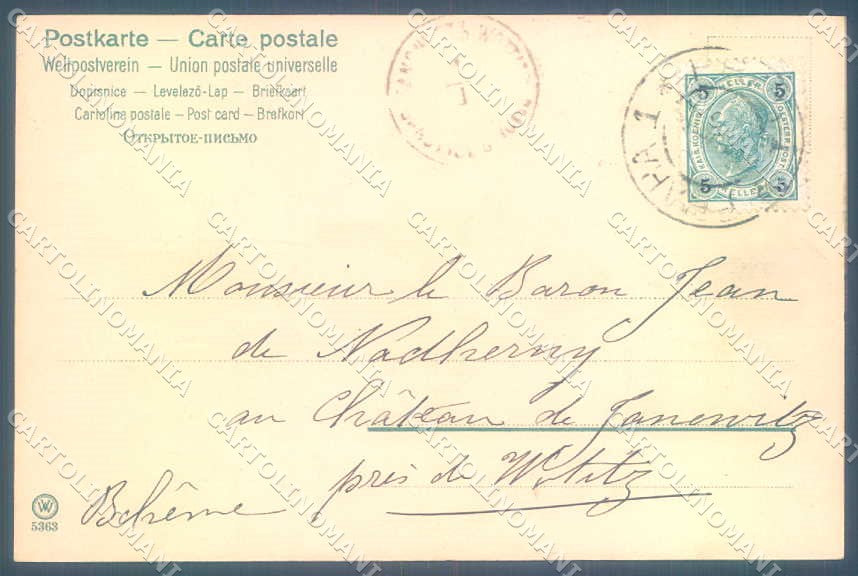 Postkarte — Carte postale
Weltpostverein — Union postale universelle
Dopisnice — Levelező-Lap — Briefkaart
Cartolina postale — Post card — Brefkort
Открытое-письмо
5 HELLER 5
KAIS. KOENIGL. OESTERR. POST
5 HELLER 5
PRAHA 1
Monsieur le Baron Jean
de Nádherny
au Château de Janowitz
près de Wotitz
Bohême
W
5363
CARTOLINOMANIA